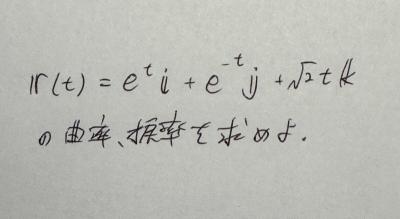 r(t) = e^t i + e^{-t} j + √2 t k
の曲率、捩率を求めよ.